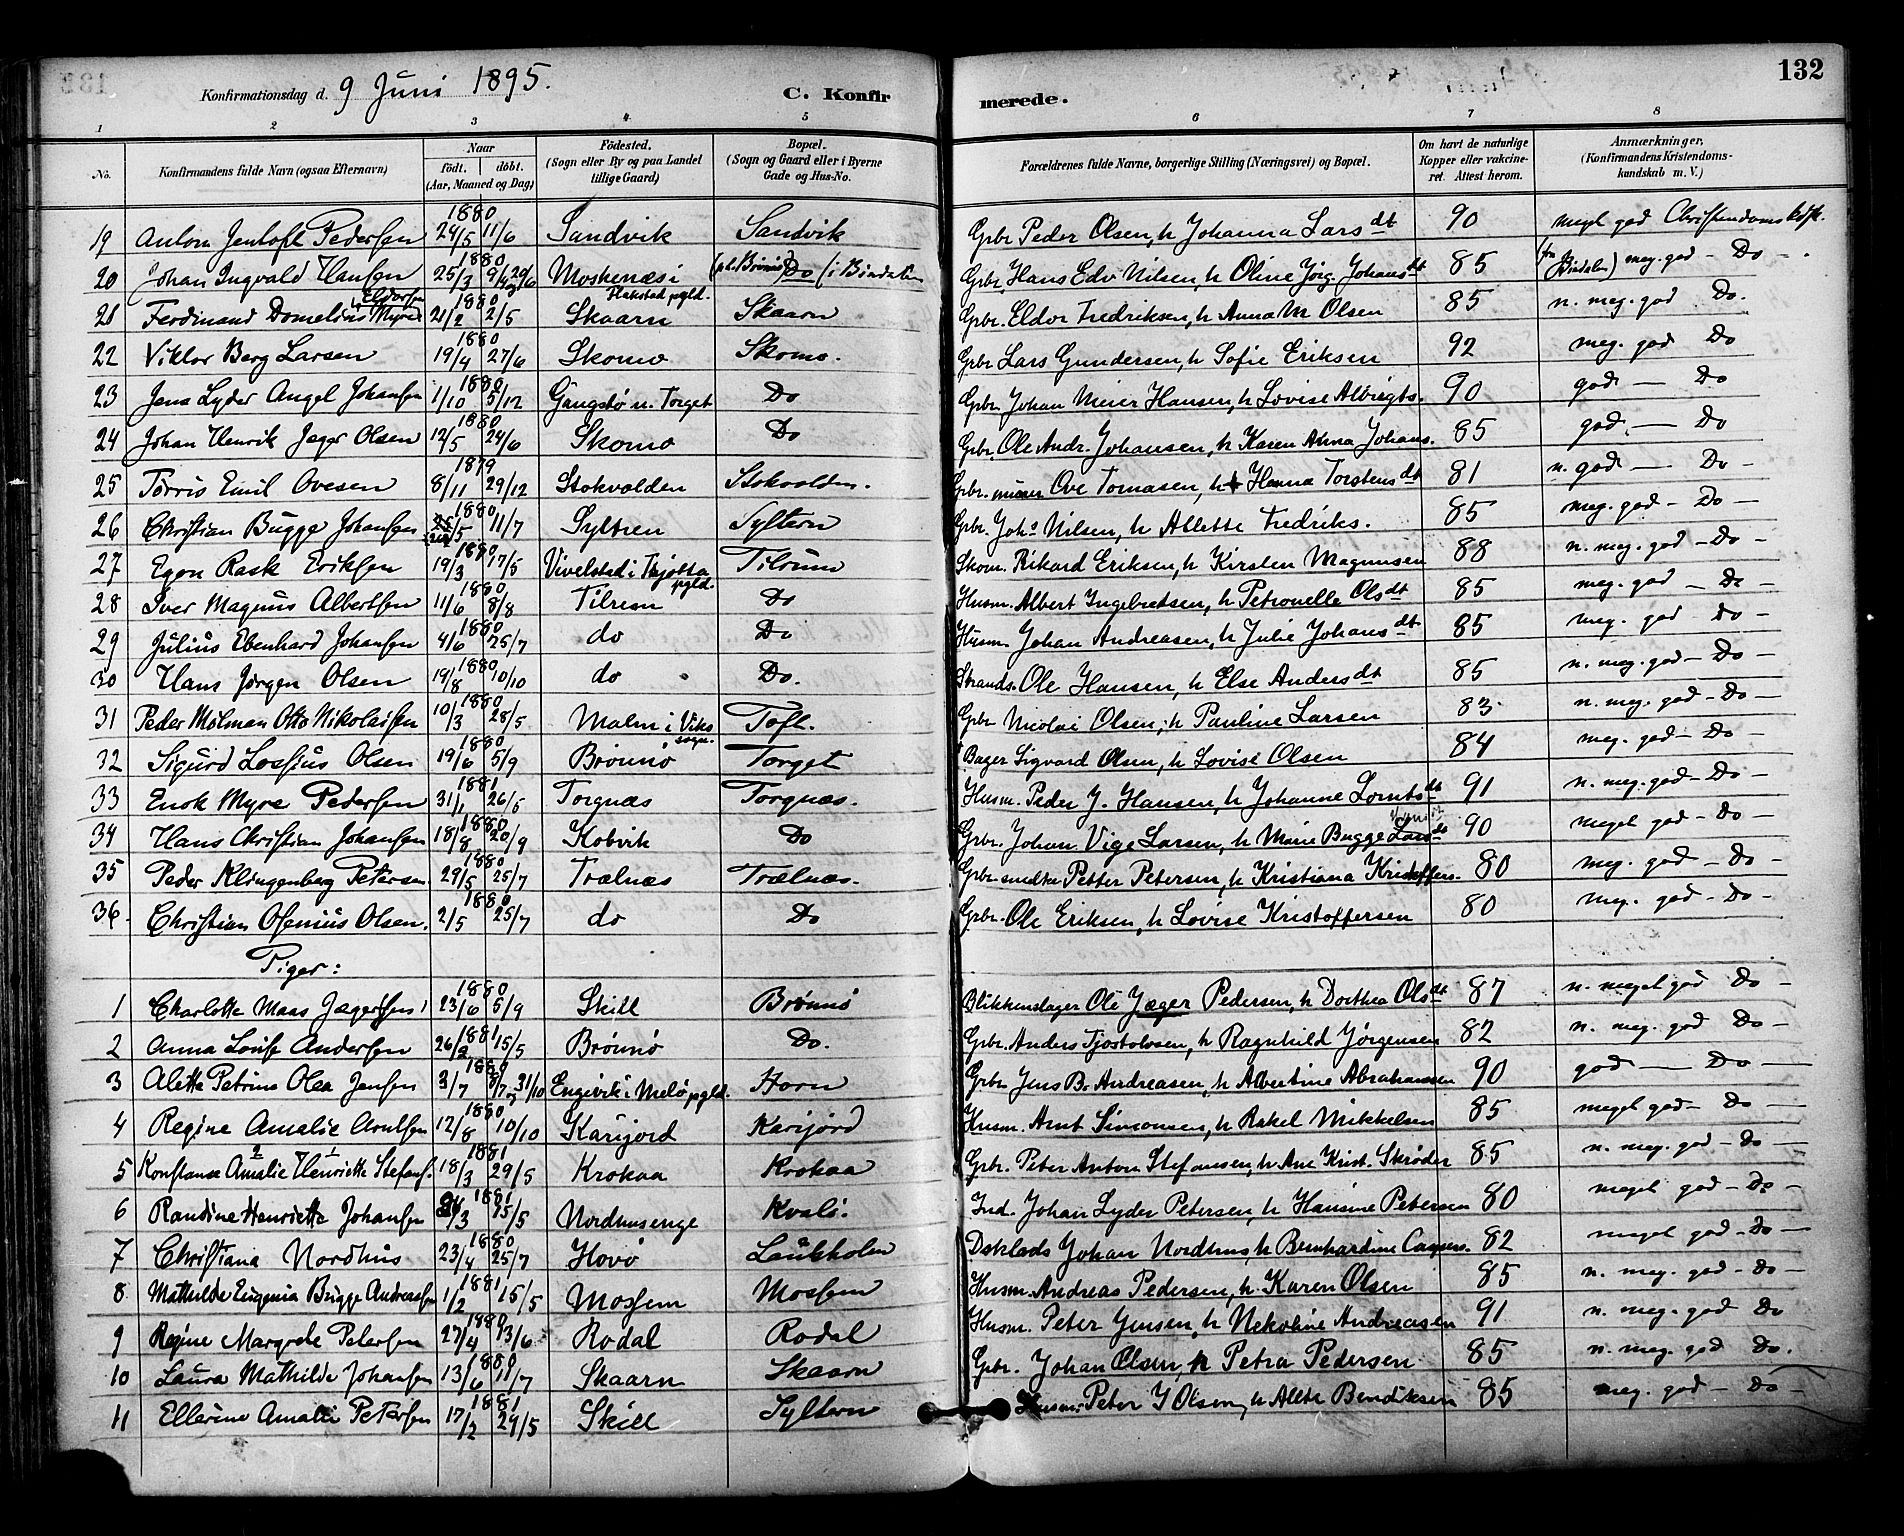 Konfirmationsdag d. 9 Juni 1895. C. Konfirmerede. 132
1 2 3 4 5 6 7 8
No. Konfirmandens fulde Navn (ogsaa Efternavn) Naar født. døbt. (Aar, Maaned og Dag) Fødested. (Sogn eller By og paa Landet tillige Gaard) Bopæl. (Sogn og Gaard eller i Byerne Gade og Hus-No. Forældrenes fulde Navne, borgerlige Stilling (Næringsvei) og Bopæl. Om havt de naturlige Kopper eller vakcineret. Attest herom. Anmærkninger, (Konfirmandens Kristendomskundskab m. V.)
19 Anton Jentoft Pedersen 1880 24/5 11/6 Sandvik Sandvik Grbr Peder Olsen, h Johanna Larsdt 90 meget god Christendomskdsk.
20 Johan Ingvald Hansen 1880 25/3 9/4 og 29/6 Moskenæs i Flakstad pgld. (pt. Brønnø) Do (i Bindalen Grbr. Hans Edv Nilsen, h Oline Jørg. Johansdt 85 (fra Bindalen) meg. god - Do -
21 Ferdinand Domelius Eldorsen Myre 1880 21/2 2/5 Skaarn Skaarn Grbr. Eldor Fredriksen, h Anna M Olsen 85 n. meg. god Do.
22 Viktor Berg Larsen 1880 19/4 27/6 Skomo Skomo. Grbr Lars Gundersen, h Sofie Eriksen 92 meg. god Do
23 Jens Lyder Angel Johansen 1880 1/10 5/12 Gangstø n. Torget Do Grbr. Johan Meier Hansen, h Lovise Albrigts. 90 god - Do
24 Johan Henrik Jæger Olsen 1880 12/5 24/6 Skomo Do Grbr. Ole Andr. Johansen, h Karen Anna Johans. 85 god - Do
25 Torris Emil Ovesen 1879 8/11 29/12 Stokvolden Stokvolden. Grbr. murer Ove Tomasen, h Hanna Torstensdt 81 n. god - Do -
26 Christian Bugge Johansen 1880 /5 11/7 Syltren Syltern Grbr. Johs Nilsen, h Allette Fredriks. 85 meg. god - Do -
27 Egon Rask Eriksen 1880 19/3 17/5 Vivelstad i Tjøtta pgld. Tilrum Skom. Rikard Eriksen, h Kirsten Magnusen 88 n. meg. god - Do -
28 Iver Magnus Albertsen 1880 11/6 8/8 Tilrem Do Husm. Albert Ingebretsen, h Petronelle Olsdt 85 meg. god - Do -
29 Julius Ebenhard Johansen 1880 4/6 25/7 do Do Husm. Johan Andreasen, h Julie Johansdt 85 meg. god - Do -
30 Hans Jørgen Olsen 1880 19/8 10/10 do Do. Strands. Ole Hansen, h Else Andersdt 85 n. meg. god - Do -
31 Peder Mølman Otto Nikolaisen 1880 10/3 28/5 Malm i Viks sogn. Toft. Grbr Nicolai Olsen, h Pauline Larsen 83 n. meg. god - Do -
32 Sigurd Lossius Olsen 1880 19/6 5/9 Brønnø Torget Bager Sigvard Olsen, h Lovise Olsen 84 meg. god - Do -
33 Enok Myre Pedersen 1881 31/1 26/5 Torgnæs Torgnæs. Husm. Peder J. Hansen, h Johanne Lorntsdt 91 n. meg. god - Do -
34 Hans Christian Johansen 1880 18/8 20/9 Kobvik Do Grbr. Johan Vige Larsen, h Marie Bugge Larsdt 90 meget god - Do -
35 Peder Klingenberg Petersen 1880 29/5 25/7 Trælnæs Trælnæs. Grbr. smed Petter Petersen, h Kristiana Kristoffers. 80 meg. god - Do -
36. Christian Ofenius Olsen. 1880 2/5 25/7 do Do Grbr. Ole Eriksen, h Lovise Kristoffersen 80 meg. god - Do -
Piger:
1 Charlotte Maas Jægersen 1880 23/6 5/9 Skill Brønnø Blikkenslager Ole Jæger Pedersen, h Dorthea Olsdt 87 n. meget god Do -
2 Anna Lovise Andersen 1881 26/2 15/5 Brønnø Do. Grbr. Anders Tjostolvsen, h Ragnhild Jørgensen 82 n. meg. god Do -
3 Aletta Petrine Olea Jensen 3/7 8/7 og 31/10 Engivik i Melø pgld. Horn Grbr Jens B. Andreasen, h Albertine Abrahamsen 90 god - Do -
4 Regine Amalie Arntsen 1880 12/8 10/10 Karijord Karijord Husm. Arnt Simonsen, h Rakel Mikkelsen 85 meget god - Do -
5 Konstanse Amalie Henriette Stefans. 1881 18/3 29/5 Krokaa Krokaa Grbr. Peter Anton Stefansen, h Ane Krist. Skrøder 85 n. meg. god - Do -
6 Randine Henriette Johansen 1881 /3 15/5 Nordhusenge Kvalø. Ind. Johan Lyder Petersen, h Hansine Petersen 80 meget god - Do -
7 Christiana Nordhus 1880 23/4 25/7 Hovø Laukholm Johan Nordhus, h Bernhardine Caspers. 82 meget god - Do -
8 Mathilde Eugenia Bugge Andreassen 1881 1/2 15/5 Mossem Mossem Husm. Andreas Pedersen, h Karen Olsen 85 n. meg. god - Do -
9 Regine Margrete Petersen 1880 27/4 13/6 Rodal Rodal Husm. Peter Jensen, h Nekoline Andreasen 91 n. meg. god Do
10 Laura Mathilde Johansen 1880 13/6 11/7 Skaarn Skaarn Grbr. Johan Olsen, h Petra Pedersen 85 n. meg. god Do.
11 Ellerine Amalie Petersen 1881 17/2 24/5 Skill Syltern Husm. Peter J Olsen, h Alette Bendiksen 85 meg. god - Do -